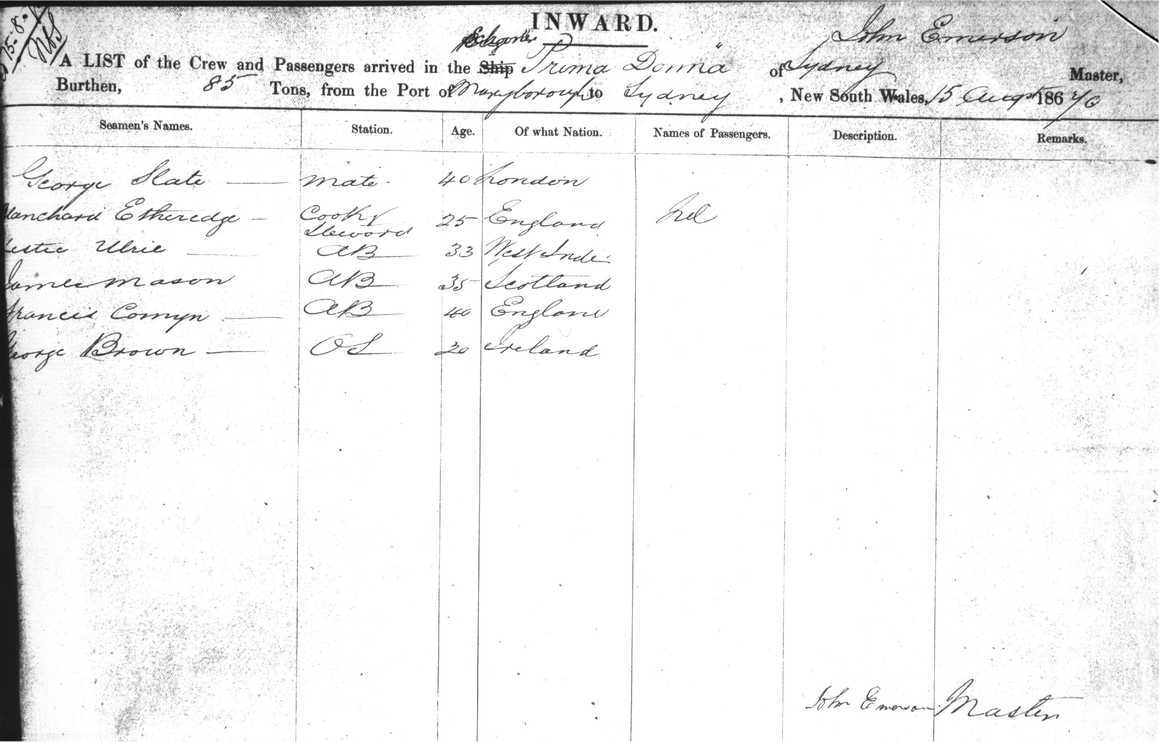 15.8.
INWARD.
John Emerson
A LIST of the Crew and Passengers arrived in the Ship Schooner Prima Donna of Sydney Master,
Burthen, 85 Tons, from the Port of Maryborough to Sydney, New South Wales, 15 Augst 186 70
Seamen's Names. Station. Age. Of what Nation. Names of Passengers. Description. Remarks.
George Slate — Mate 40 London
Blanchard Etheredge — Cook & Steward 25 England Nil
Ulric — AB 33 West Indi
James Mason AB 35 Scotland
Francis Comyn — AB 40 England
George Brown — OS 20 Ireland
John Emerson Master